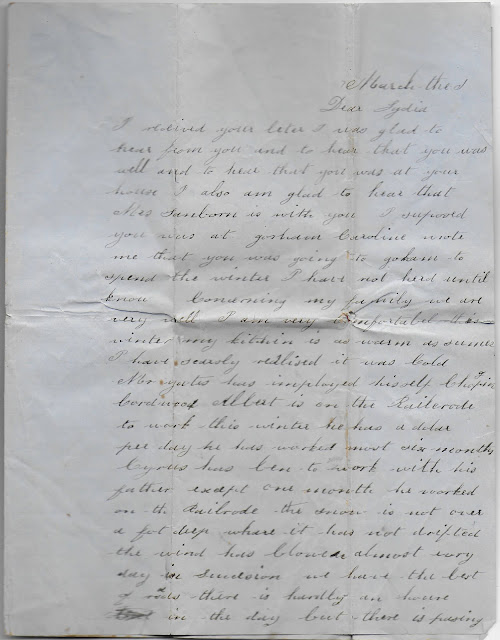 March the 1
Dear Lydia
I received your leter I was glad to
hear from you and to hear that you was
well and to hear that you was at your
house I also am glad to hear that
Mrs Sanborn is with you I suposed
you was at gorham Caroline wrote
me that you was going to goham to
spend the winter I have not herd until
know Concerning my family we are
very well I am very comportabel this
winter my kitchin is as warm as sumer
I have scarsly rellised it was Cold
Mr yates has imployed hisself Chopin
Cordwood Albert is on the Railerode
to work this winter he has a dolar
per day he has worked most six months
Cyrus has ben to work with his
father except one month he worked
on the Railrode the snow is not over
a fot deep where it has not drifted
the wind has blowen almost evry
day in sucesion we have the best
of rodes there is hardly an houre
in the day but there is pasing